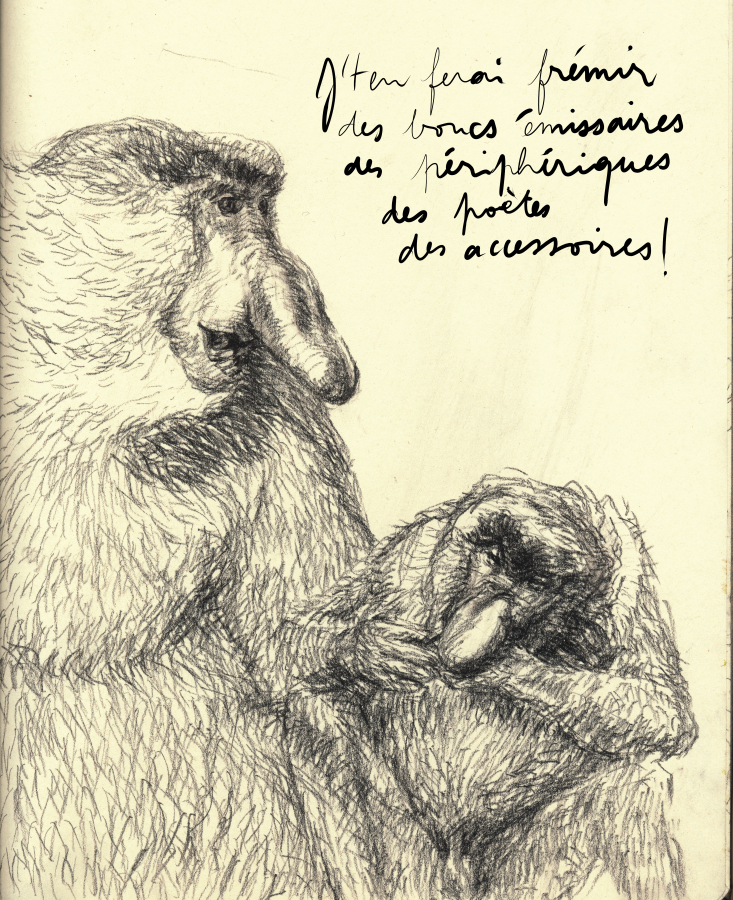 J't'en ferai frémir
des boucs émissaires
des périphériques
des poètes
des accessoires!